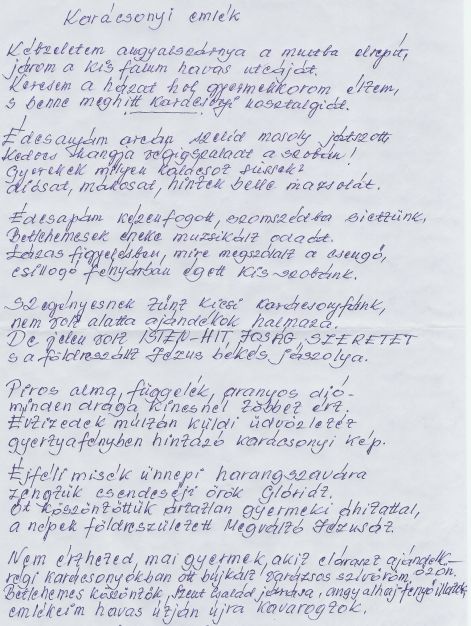 Karácsonyi emlék
Képzeletem angyalszárnya a multba elrepít,
járom a kis falum havas utcáját.
Keresem a házat hol gyermekkorom éltem,
s benne meghitt karácsonyi nosztalgiát.
Édesanyám arcán szelid mosoly játszott,
kedves hangja végigszaladt a szobán!
Gyerekek milyen kalácsot süssek?
diósat, mákosat, hintek belle mazsolát.
Édesapám kézenfogott, szomszédba siettünk,
Betlehemesek éneke muzsikált odaát.
Lázas figyelésben, mire megszólalt a csengő,
csillogó fényárban égett kis szobánk.
Szegényesnek tűnt kicsi karácsonyfánk,
nem volt alatta ajándékok halmaza.
De jelen volt ISTEN-HIT, JÓSÁG, SZERETET
s a földreszállt Jézus békés jászolya.
Piros alma, függelék, aranyos dió-
minden drága kincsnél többet ért.
Évtizedek multán küldi üdvözletét
gyertyafényben hintázó karácsonyi kép.
Éjféli misék ünnepi harangszavára
zengtük csendeséji örök Glóriát.
Őt köszöntöttük ártatlan gyermeki áhitattal,
a népek földreszületett Megváltó Jézusát.
Nem értheted, mai gyermek, akit eláraszt ajándék-
özön,
régi karácsonyokban ott bujkált varázsos szivöröm,
Betlehemes köszöntők, Szent család járása, angyalhaj-fenyőillatok,
emlékeim havas útján újra kavarogtok.